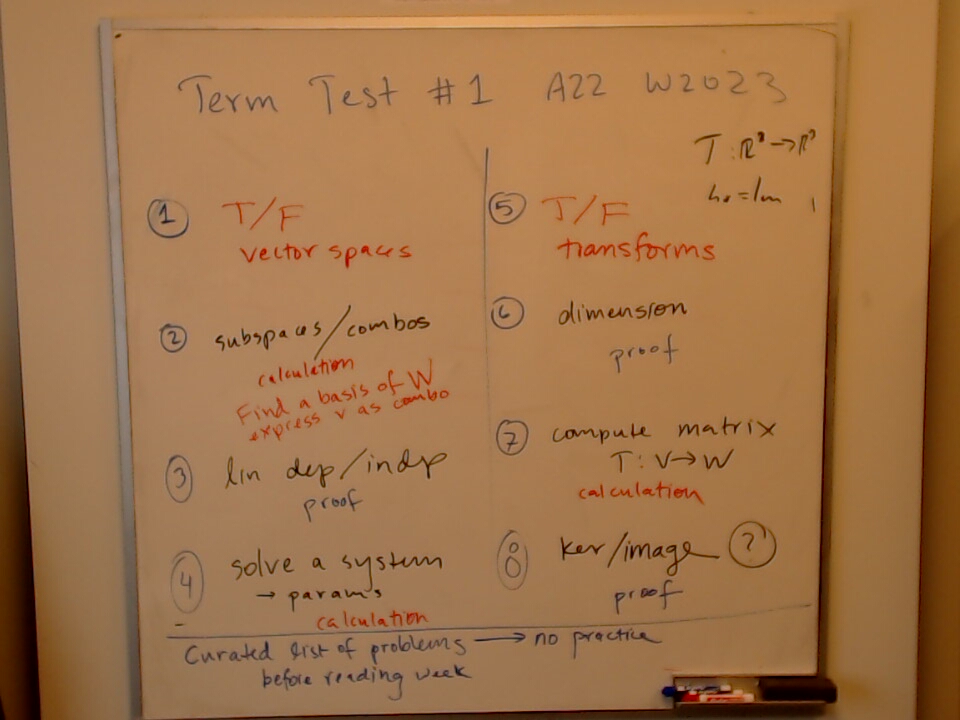 Term Test #1 A22 W2023
① T/F
vector spaces
② subspaces/combos
calculation
Find a basis of W
express v as combo
③ lin dep/indep
proof
④ solve a system
→ params
calculation
T: R³→R³
⑤ T/F
transforms
⑥ dimension
proof
⑦ compute matrix
T: V→W
calculation
⑧ ker/image ?
proof
Curated list of problems → no practice
before reading week